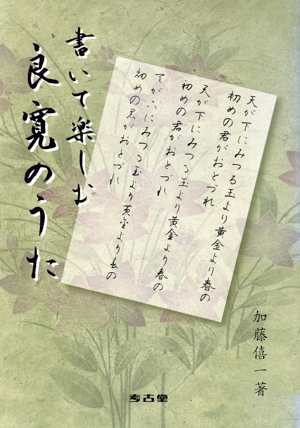 書いて楽しむ
良寛のうた
天が下にみつる玉より黄金より春の
初めの君がおとづれ
天が下にみつる玉より黄金より春の
初めの君がおとづれ
天が下にみつる玉より黄金より春の
初めの君がおとづれ
加藤僖一著
考古堂